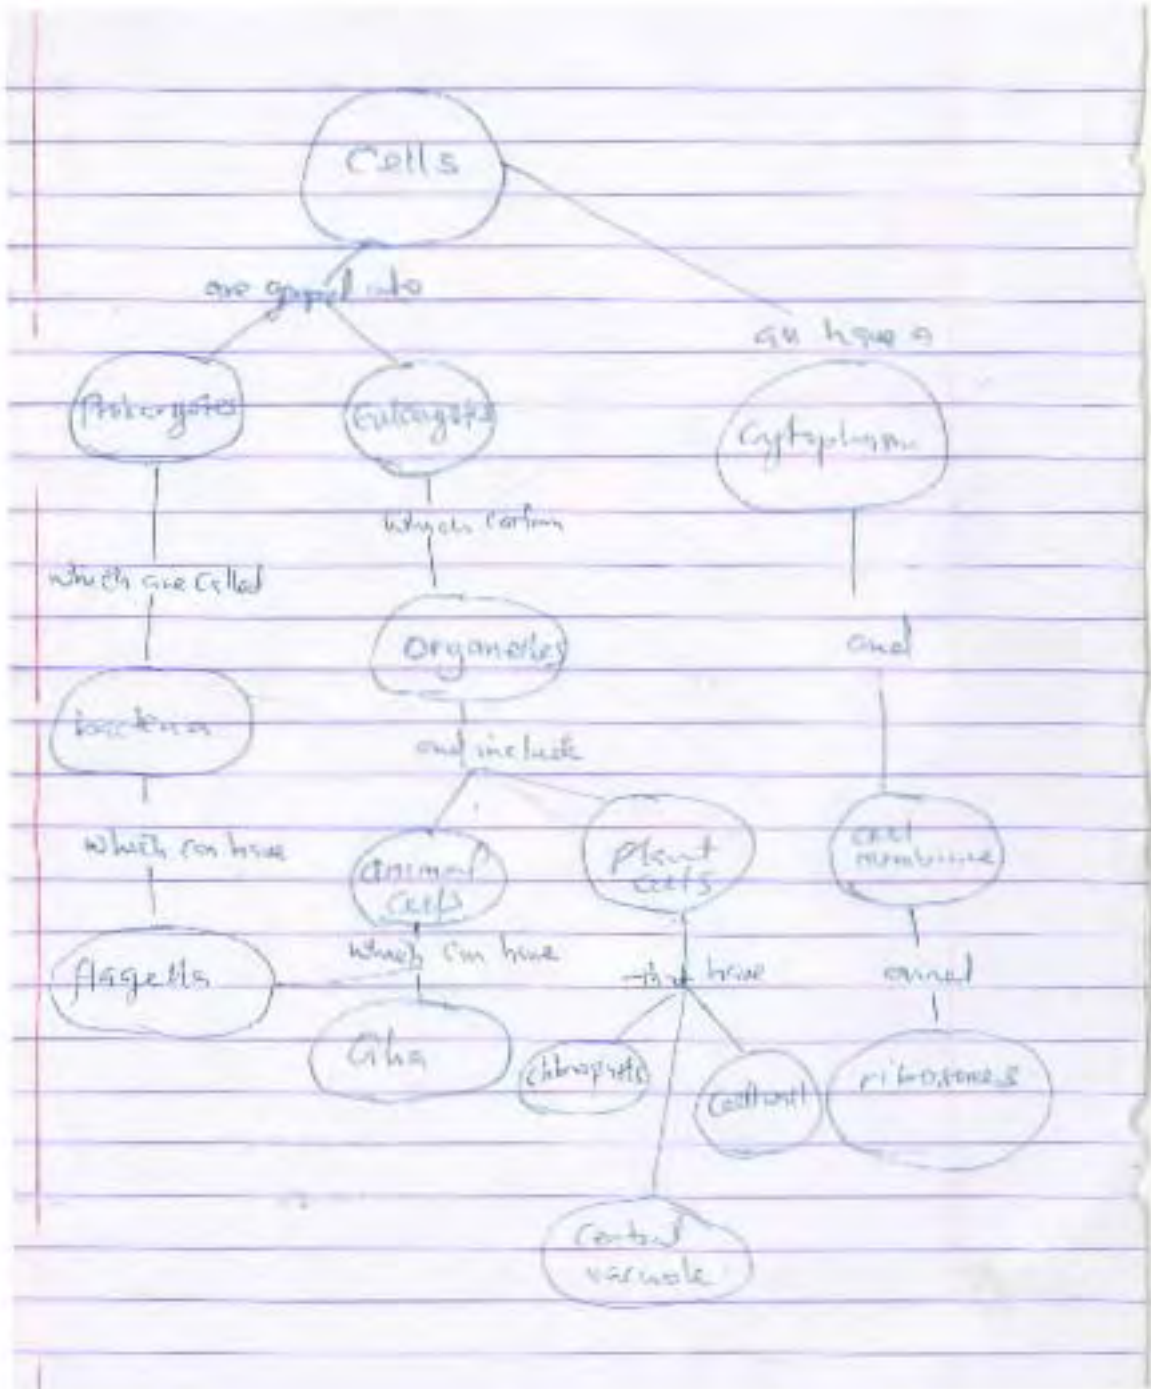 Cells
are grouped into
all have a
Prokaryotes
Eukaryotes
Cytoplasm
which contain
which are called
Organelles
and
bacteria
and include
which can have
animal
cells
Plant
cells
cell
membrane
which can have
that have
and
flagella
Cilia
cell wall
ribosomes
Central
vacuole